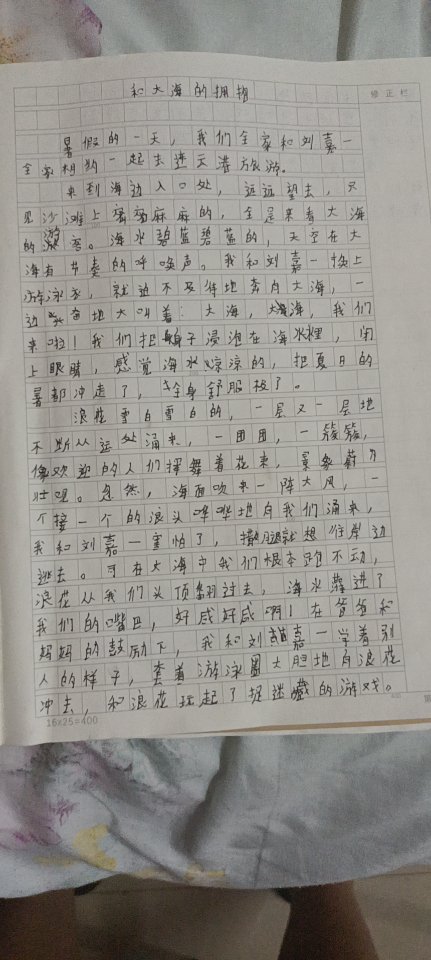 和大海的拥抱
修正栏
暑假的一天，我们全家和刘嘉一
全家相约一起去连云港旅游。
来到海边入口处，远远望去，只
见沙滩上密密麻麻的，全是来看大海
的游客。海水碧蓝碧蓝的，天空在大
海有节奏的呼唤声。我和刘嘉一换上
游泳衣，就迫不及待地奔向大海，一
边兴奋地大叫着：大海，大海，我们
来啦！我们把身子浸泡在海水里，闭
上眼睛，感觉海水凉凉的，把夏日的
暑都冲走了，全身舒服极了。
浪花雪白雪白的，一层又一层地
不断从远处涌来，一团团，一簇簇，
像欢迎的人们挥舞着花束，景象蔚为
壮观。忽然，海面吹来一阵大风，一
个接一个的浪头哗哗地向我们涌来，
我和刘嘉一害怕了，撒腿就想往岸边
逃去。可在大海中我们根本跑不动，
浪花从我们头顶翻过去，海水灌进了
我们的嘴巴，好咸好咸啊！在爸爸和
妈妈的鼓励下，我和刘嘉一学着别
人的样子，套着游泳圈大胆地向浪花
冲去，和浪花玩起了捉迷藏的游戏。
16×25=400
第